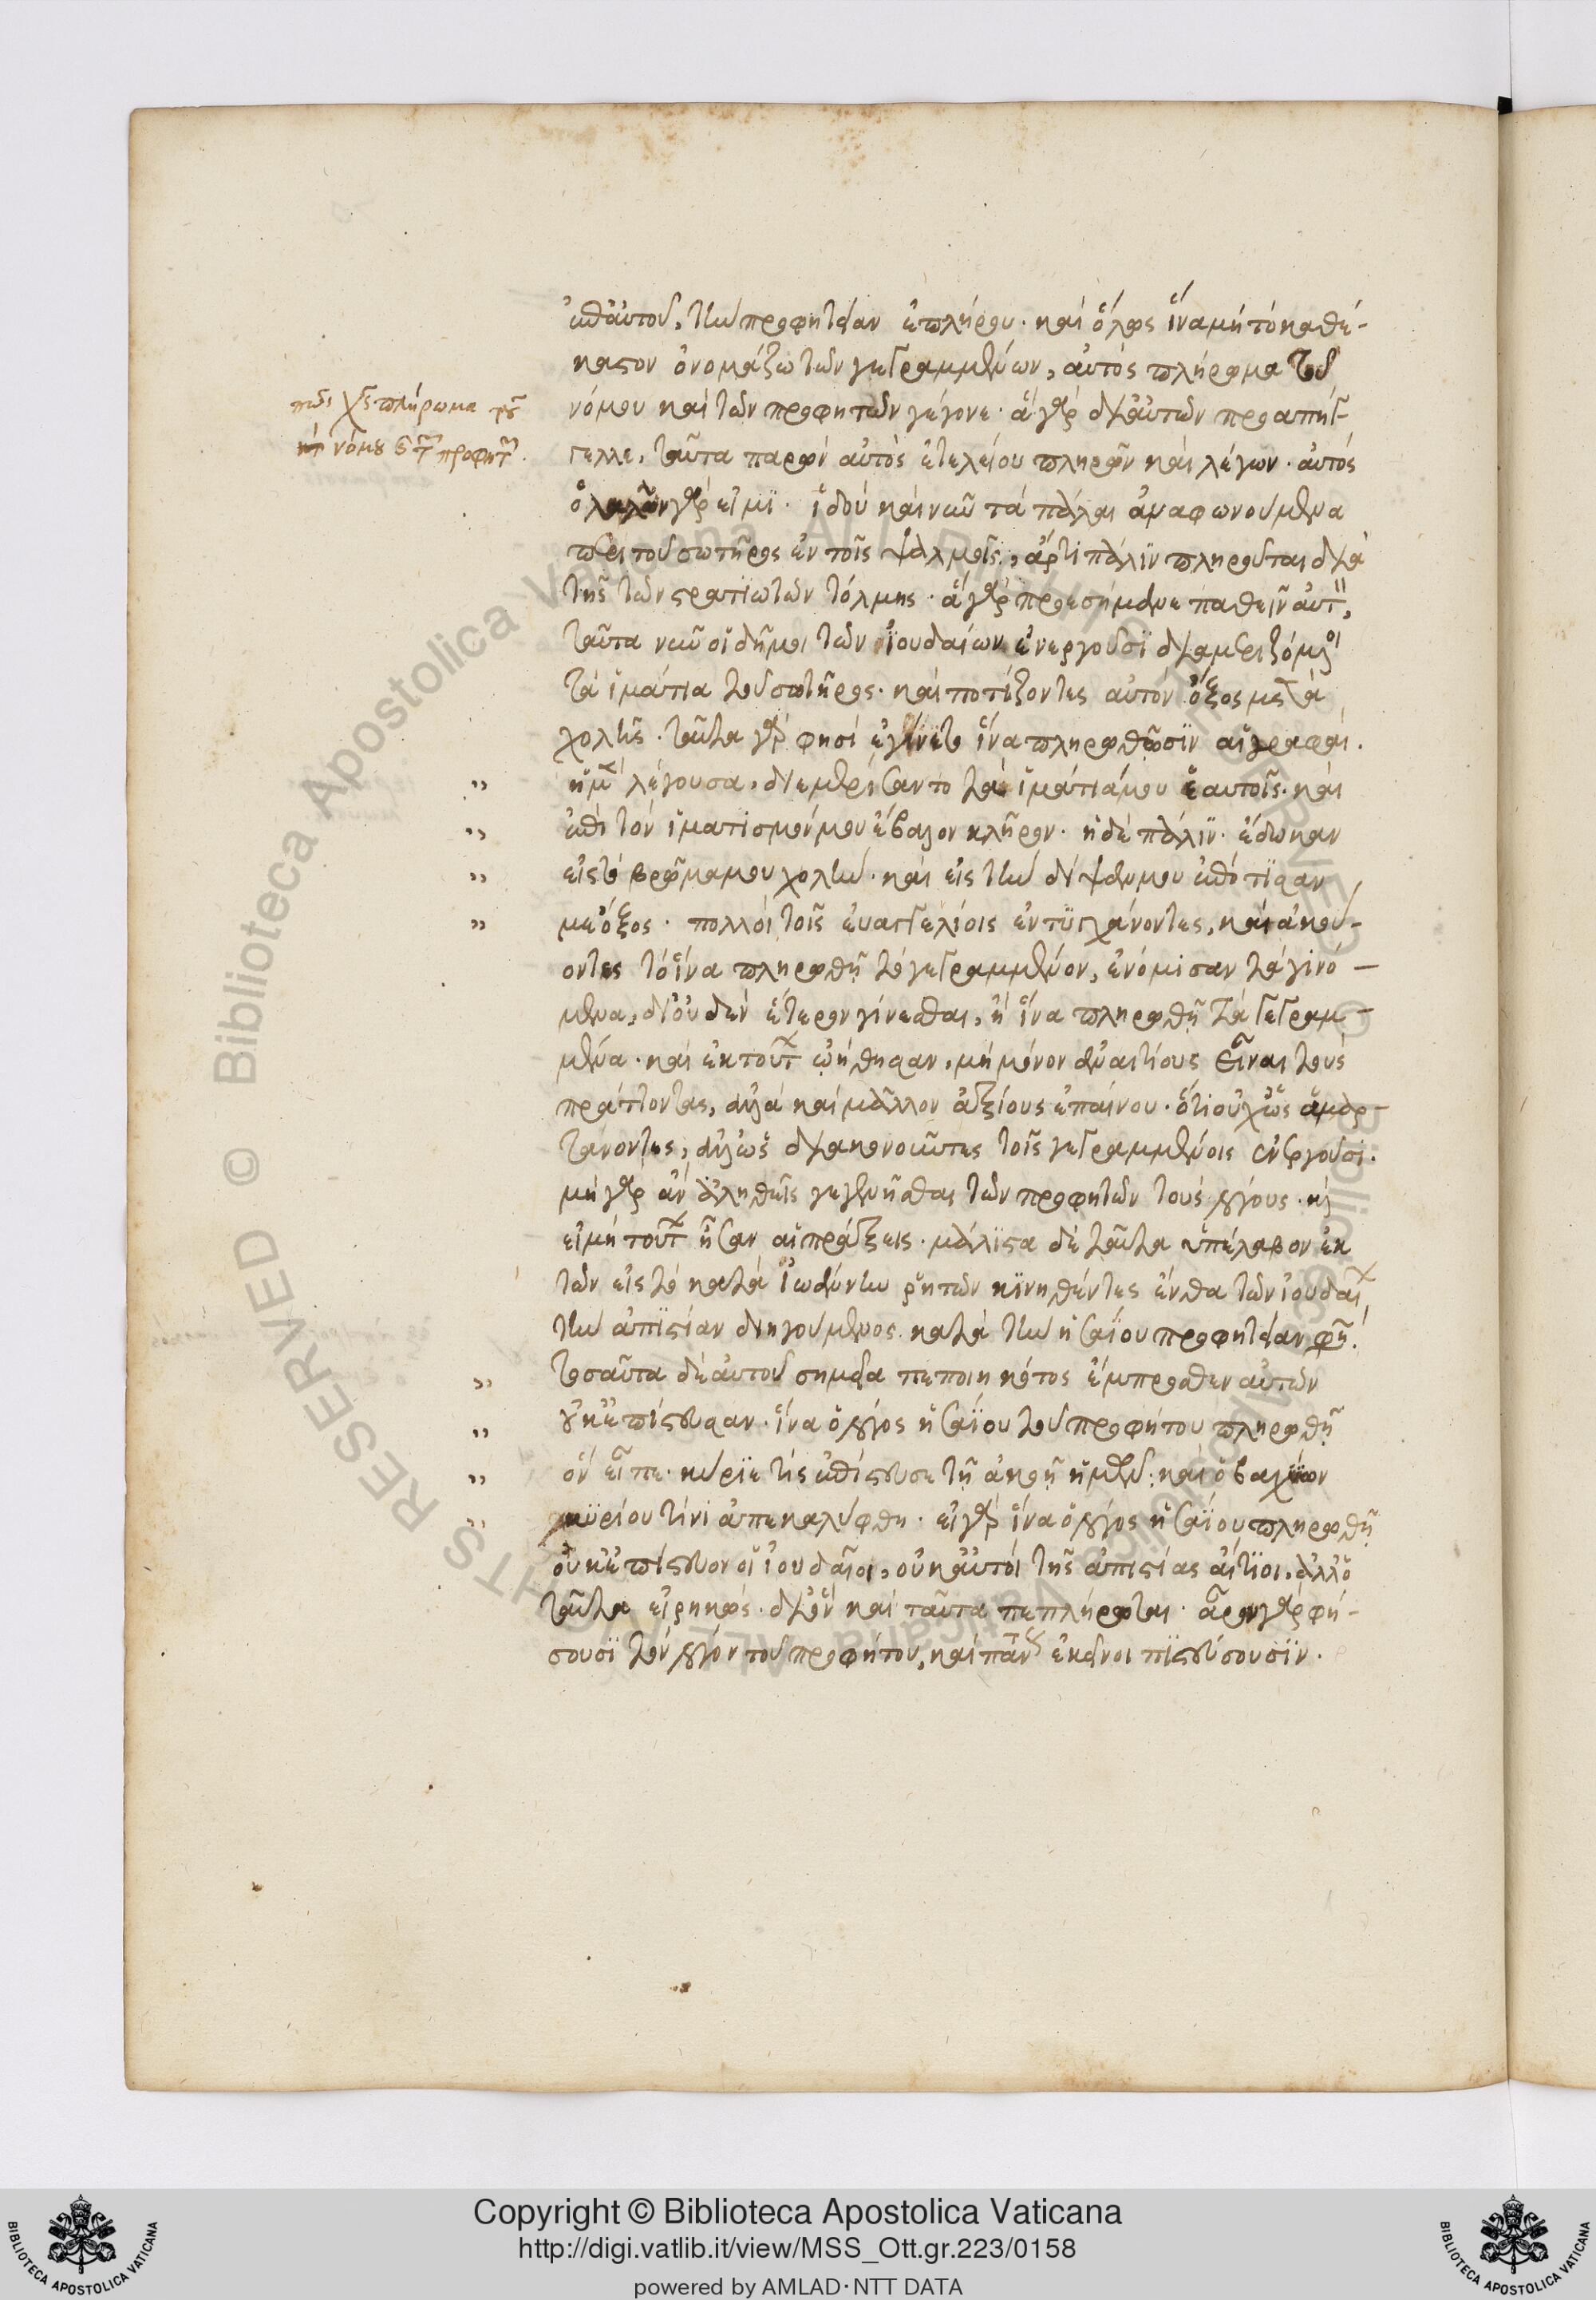 ἐπ' αὐτοῦ, τὴν προφητείαν ἐπλήρου· καὶ ὅλως ἵνα μὴ τὸ καθέ-
καστον ὀνομάζω τῶν γεγραμμένων, αὐτὸς πλήρωμα τοῦ
πῶς χς πλήρωμα τοῦ
νόμου καὶ τῶν προφητῶν γέγονε· ἃ γὰρ δι' αὐτῶν προαπήγ-
νόμου τ προφητ.
γελλε, ταῦτα παρὼν αὐτὸς ἐτελείου πληρῶν καὶ λέγων· αὐτὸς
ὁ λαλῶν γάρ εἰμϊ· ἰδοὺ καὶ νῦν τὰ πάλαι ἀναφωνούμενα
περὶ τοῦ σωτῆρος ἐν τοῖς ψαλμοῖς, ἄρτι πάλϊν πληροῦται διὰ
τῆς τῶν στρατιωτῶν τόλμης· ἃ γὰρ προεσήμαινε παθεῖν αὐτ,
ταῦτα νῦν οἱ δῆμοι τῶν ἰουδαίων ἐνεργοῦσϊ διαμεριζόμοι
τὰ ἱμάτια τοῦ σωτῆρος· καὶ ποτίζοντες αὐτὸν ὄξος μετὰ
χολῆς· ταῦτα γὰρ φησὶ ἐγίνετο ἵνα πληρωθῶσϊν αἱ γραφαί.
ἡ μ λέγουσα, διεμερίσαντο τὰ ἱμάτιά μου ἑαυτοῖς· καὶ
ἐπὶ τὸν ἱματισμόν μου ἔβαλον κλῆρον· ἡ δὲ πάλϊν· ἔδωκαν
εἰς τὸ βρῶμα μου χολὴν· καὶ εἰς τὴν δίψαν μου ἐπότϊσαν
με ὄξος· πολλοὶ τοῖς εὐαγγελίοις ἐντϋγχάνοντες, καὶ ἀκού-
οντες τὸ ἵνα πληρωθῇ τὸ γεγραμμένον, ἐνόμισαν τὰ γινό-
μενα, δι' οὐδὲν ἕτερον γίνεσθαι, ἢ ἵνα πληρωθῇ τὰ γεγραμ-
μένα· καὶ ἐκ τούτ ᾠήθησαν, μὴ μόνον ἀναιτίους εἶναι τοὺς
πράττοντας, ἀλλὰ καὶ μᾶλλον ἀξίους ἐπαίνου· ὅτι οὐχ ὡς ἁμαρ-
τάνοντες, ἀλλ' ὡς διακονοῦντες τοῖς γεγραμμένοις ἐνεργοῦσι.
μὴ γὰρ ἂν ἀληθεῖς γεγενῆσθαι τῶν προφητῶν τοὺς λόγους· κὶ
εἰ μὴ τοῦτ ἦσαν αἱ πράξεις· μάλϊστα δὲ ταῦτα ὑπέλαβον ἐκ
τῶν εἰς τὸ κατὰ ἰωάννην ῥητῶν κϊνηθέντες ἔνθα τῶν ἰουδαί
τὴν ἀπϊστίαν διηγούμενος κατὰ τὴν ἡσαΐου προφητείαν φη.
τοσαῦτα δὲ αὐτοῦ σημεῖα πεποιηκότος ἔμπροσθεν αὐτῶν
οὐκ ἐπίστευσαν· ἵνα ὁ λόγος ἡσαΐου τοῦ προφήτου πληρωθῇ
ὃν εἶπε· κύρϊε τίς ἐπίστευσε τῇ ἀκοῇ ἡμῶν· καὶ ὁ βραχίων
κϋρίου τίνι ἀπεκαλύφθη· εἰ γὰρ ἵνα ὁ λόγος ἡσαΐου πληρωθῇ
οὐκ ἐπίστευον οἱ ἰουδαῖοι, οὐκ αὐτοὶ τῆς ἀπιστίας αἴτϊοι, ἀλλ' ὁ
ταῦτα εἰρηκὼς· δι' ὃν καὶ ταῦτα πεπλήρωται· ἆρον γὰρ φή-
σουσϊ τὸν λόγον τοῦ προφήτου, καὶ πάντ ἐκεῖνοι πϊστεύσουσϊν.
Copyright © Biblioteca Apostolica Vaticana
http://digi.vatlib.it/view/MSS_Ott.gr.223/0158
powered by AMLAD·NTT DATA
BIBLIOTECA APOSTOLICA VATICANA
BIBLIOTECA APOSTOLICA VATICANA